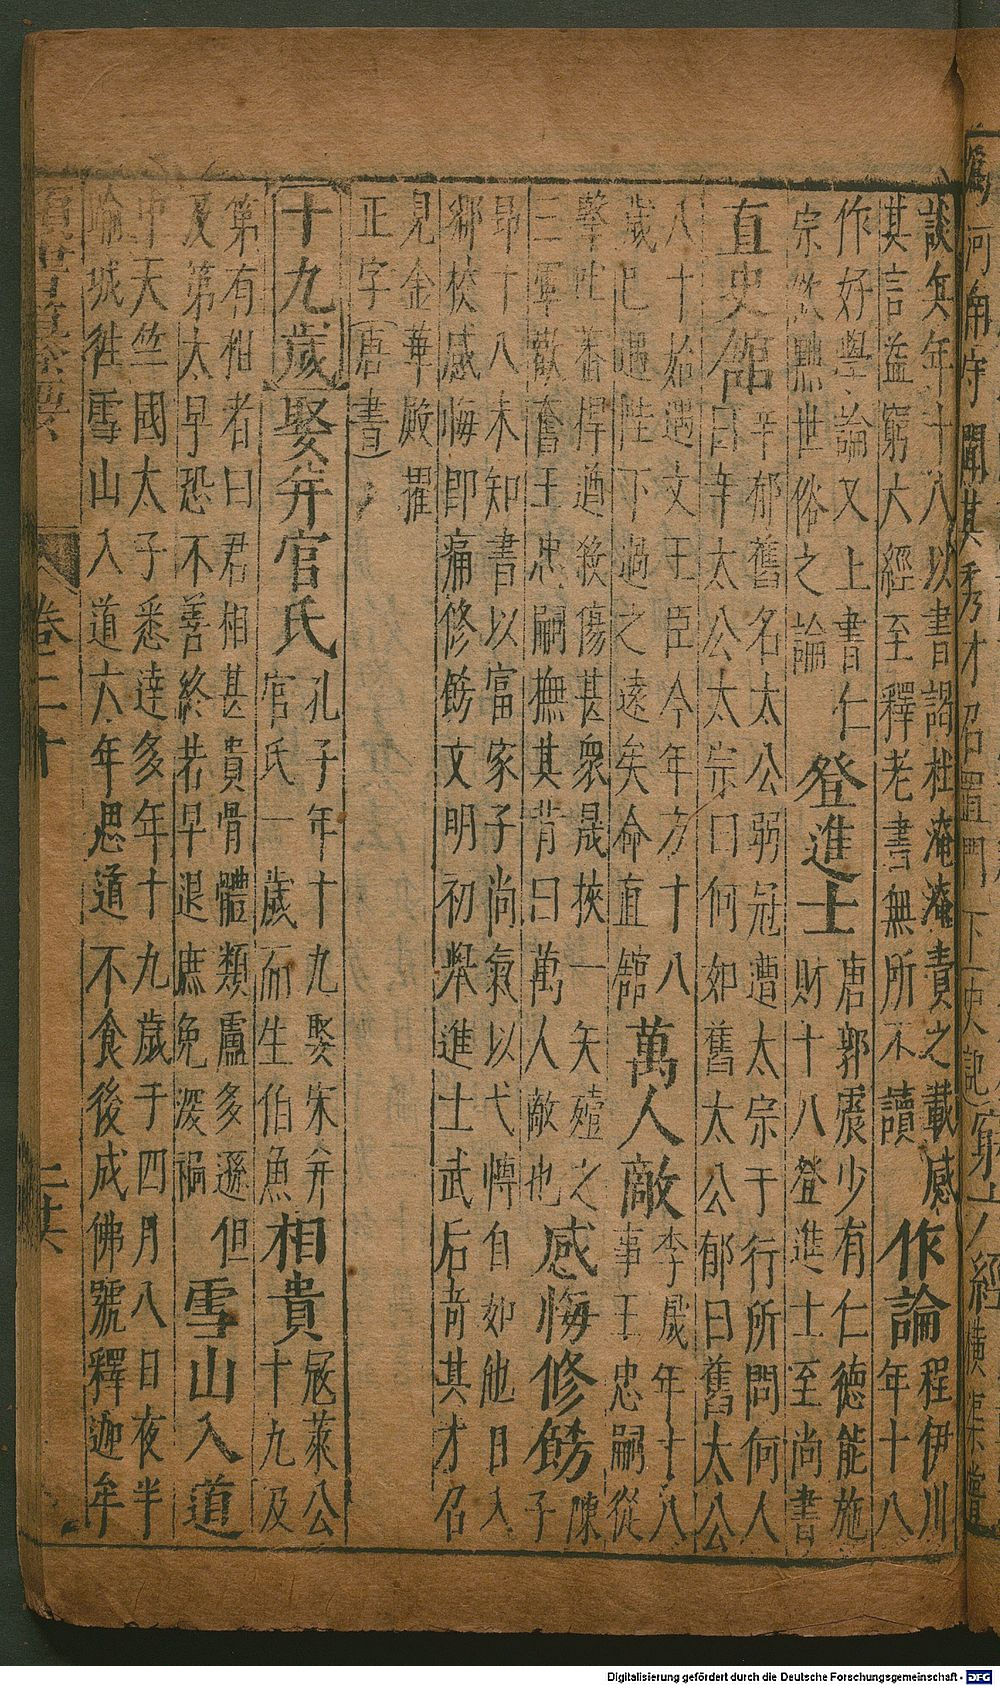 談兵年十八以書謁杜淹淹責之載感
其言益窮大經至釋老書無所不讀作論程伊川
年十八
作好學論又上書仁
宗欲黜世俗之論登進士唐郭震少有仁德能施
財十八登進士至尚書
直史館辛郁舊名太公弱冠遭太宗于行所問何人
曰辛太公太宗曰何如舊太公郁曰舊太公
八十始遇文王臣今年方十八
歲已遇陛下過之遠矣命直館萬人敵李晟年十八
事王忠嗣從
擊吐蕃悍酋狡傷甚衆晟挾一矢殪之
三軍歡奮王忠嗣撫其背曰萬人敵也感悔修飭陳
子
昂十八未知書以富家子尚氣以弋博自如他日入
鄉校感悔即痛修飭文明初舉進士武后奇其才召
見金華殿擢
正字(唐書)
十九歲娶幷官氏孔子年十九娶宋幷
官氏一歲而生伯魚相貴寇萊公
十九及
第有相者曰君相甚貴骨體類盧多遜但
及第太早恐不善終若早退庶免深禍雪山入道
中天竺國太子悉達多年十九歲于四月八日夜半
喻城往雪山入道六年思道不食後成佛號釋迦牟
卷二十
二十六
Digitalisierung gefördert durch die Deutsche Forschungsgemeinschaft - DFG